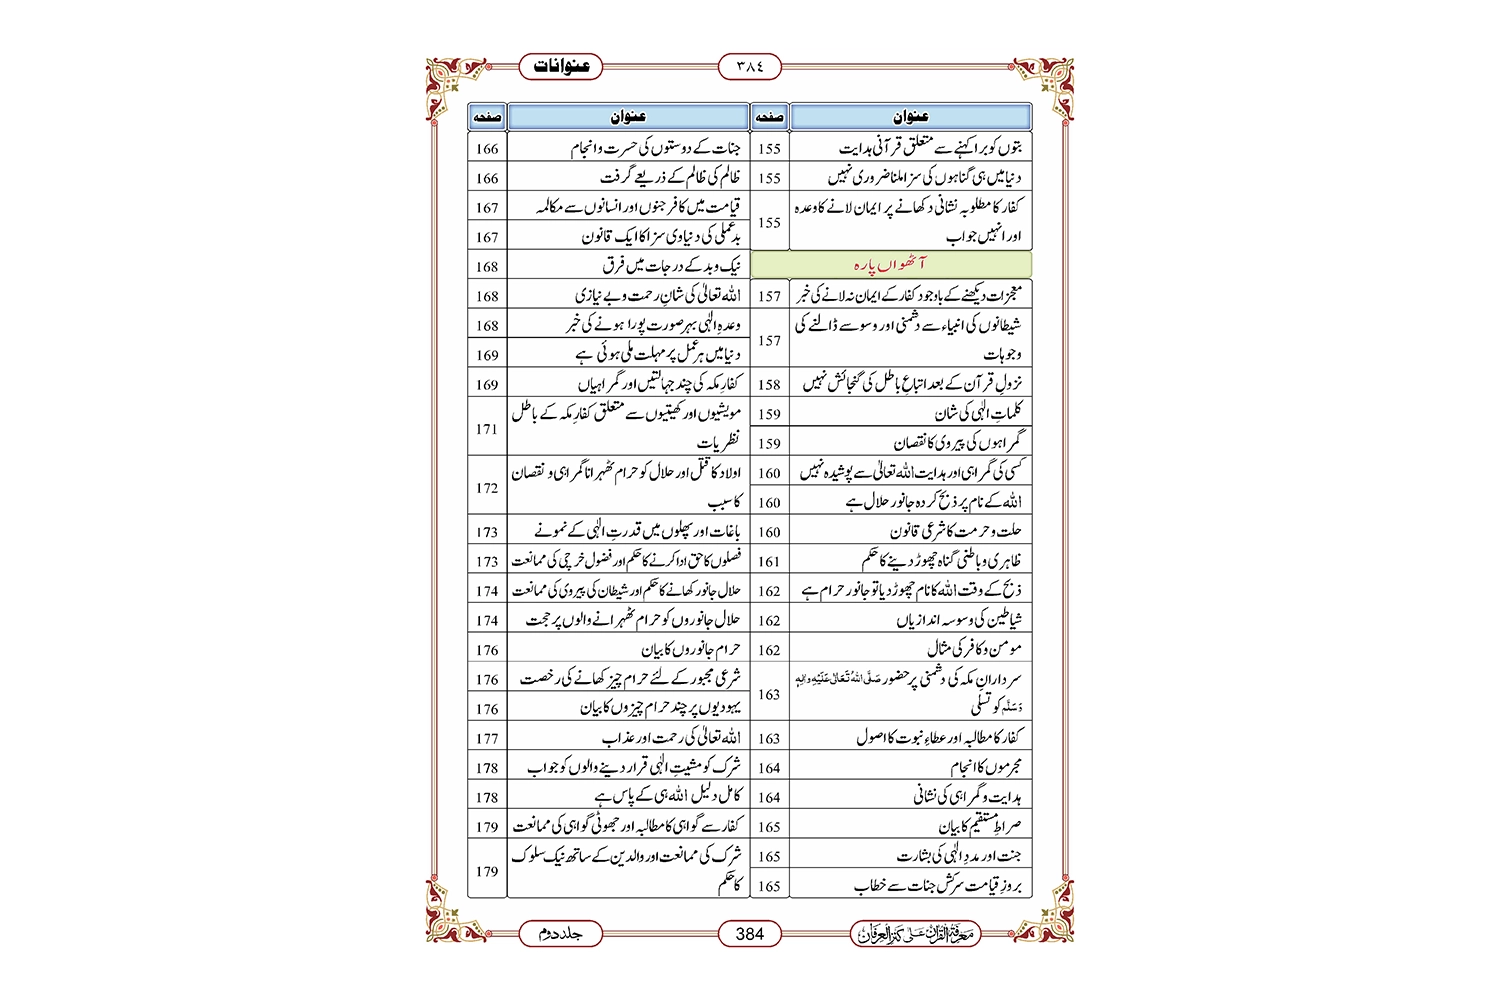 عنوانات
٣٨٤
عنوان صفحہ
بتوں کو برا کہنے سے متعلق قرآنی ہدایت 155
دنیا میں ہی گناہوں کی سزا ملنا ضروری نہیں 155
کفار کا مطلوبہ نشانی دکھانے پر ایمان لانے کا وعدہ
اور انہیں جواب 155
آٹھواں پارہ
معجزات دیکھنے کے باوجود کفار کے ایمان نہ لانے کی خبر 157
شیطانوں کی انبیاء سے دشمنی اور وسوسے ڈالنے کی
وجوہات 157
نزولِ قرآن کے بعد اتباعِ باطل کی گنجائش نہیں 158
کلماتِ الٰہی کی شان 159
گمراہوں کی پیروی کا نقصان 159
کسی کی گمراہی اور ہدایت اللہ تعالیٰ سے پوشیدہ نہیں 160
اللہ کے نام پر ذبح کردہ جانور حلال ہے 160
حلت و حرمت کا شرعی قانون 160
ظاہری و باطنی گناہ چھوڑ دینے کا حکم 161
ذبح کے وقت اللہ کا نام چھوڑ دیا تو جانور حرام ہے 162
شیاطین کی وسوسہ اندازیاں 162
مومن و کافر کی مثال 162
سردارانِ مکہ کی دشمنی پر حضور صَلَّی اللہُ تَعَالٰی عَلَیْہِ وَاٰلِہٖ
وَسَلَّم کو تسلی 163
کفار کا مطالبہ اور عطاءِ نبوت کا اصول 163
مجرموں کا انجام 164
ہدایت و گمراہی کی نشانی 164
صراطِ مستقیم کا بیان 165
جنت اور مددِ الٰہی کی بشارت 165
بروزِ قیامت سرکش جنات سے خطاب 165
عنوان صفحہ
جنات کے دوستوں کی حسرت و انجام 166
ظالم کی ظالم کے ذریعے گرفت 166
قیامت میں کافر جنوں اور انسانوں سے مکالمہ 167
بد عملی کی دنیاوی سزا کا ایک قانون 167
نیک و بد کے درجات میں فرق 168
اللہ تعالیٰ کی شانِ رحمت و بے نیازی 168
وعدہ الٰہی بہر صورت پورا ہونے کی خبر 168
دنیا میں ہر عمل پر مہلت ملی ہوئی ہے 169
کفارِ مکہ کی چند جہالتیں اور گمراہیاں 169
مویشیوں اور کھیتیوں سے متعلق کفارِ مکہ کے باطل
نظریات 171
اولاد کا قتل اور حلال کو حرام ٹھہرانا گمراہی و نقصان
کا سبب 172
باغات اور پھلوں میں قدرتِ الٰہی کے نمونے 173
فصلوں کا حق ادا کرنے کا حکم اور فضول خرچی کی ممانعت 173
حلال جانور کھانے کا حکم اور شیطان کی پیروی کی ممانعت 174
حلال جانوروں کو حرام ٹھہرانے والوں پر حجت 174
حرام جانوروں کا بیان 176
شرعی مجبور کے لئے حرام چیز کھانے کی رخصت 176
یہودیوں پر چند حرام چیزوں کا بیان 176
اللہ تعالیٰ کی رحمت اور عذاب 177
شرک کو مشیتِ الٰہی قرار دینے والوں کو جواب 178
کامل دلیل اللہ ہی کے پاس ہے 178
کفار سے گواہی کا مطالبہ اور جھوٹی گواہی کی ممانعت 179
شرک کی ممانعت اور والدین کے ساتھ نیک سلوک
کا حکم 179
معرفۃ القرآن علی کنز العرفان
384
جلد دوم